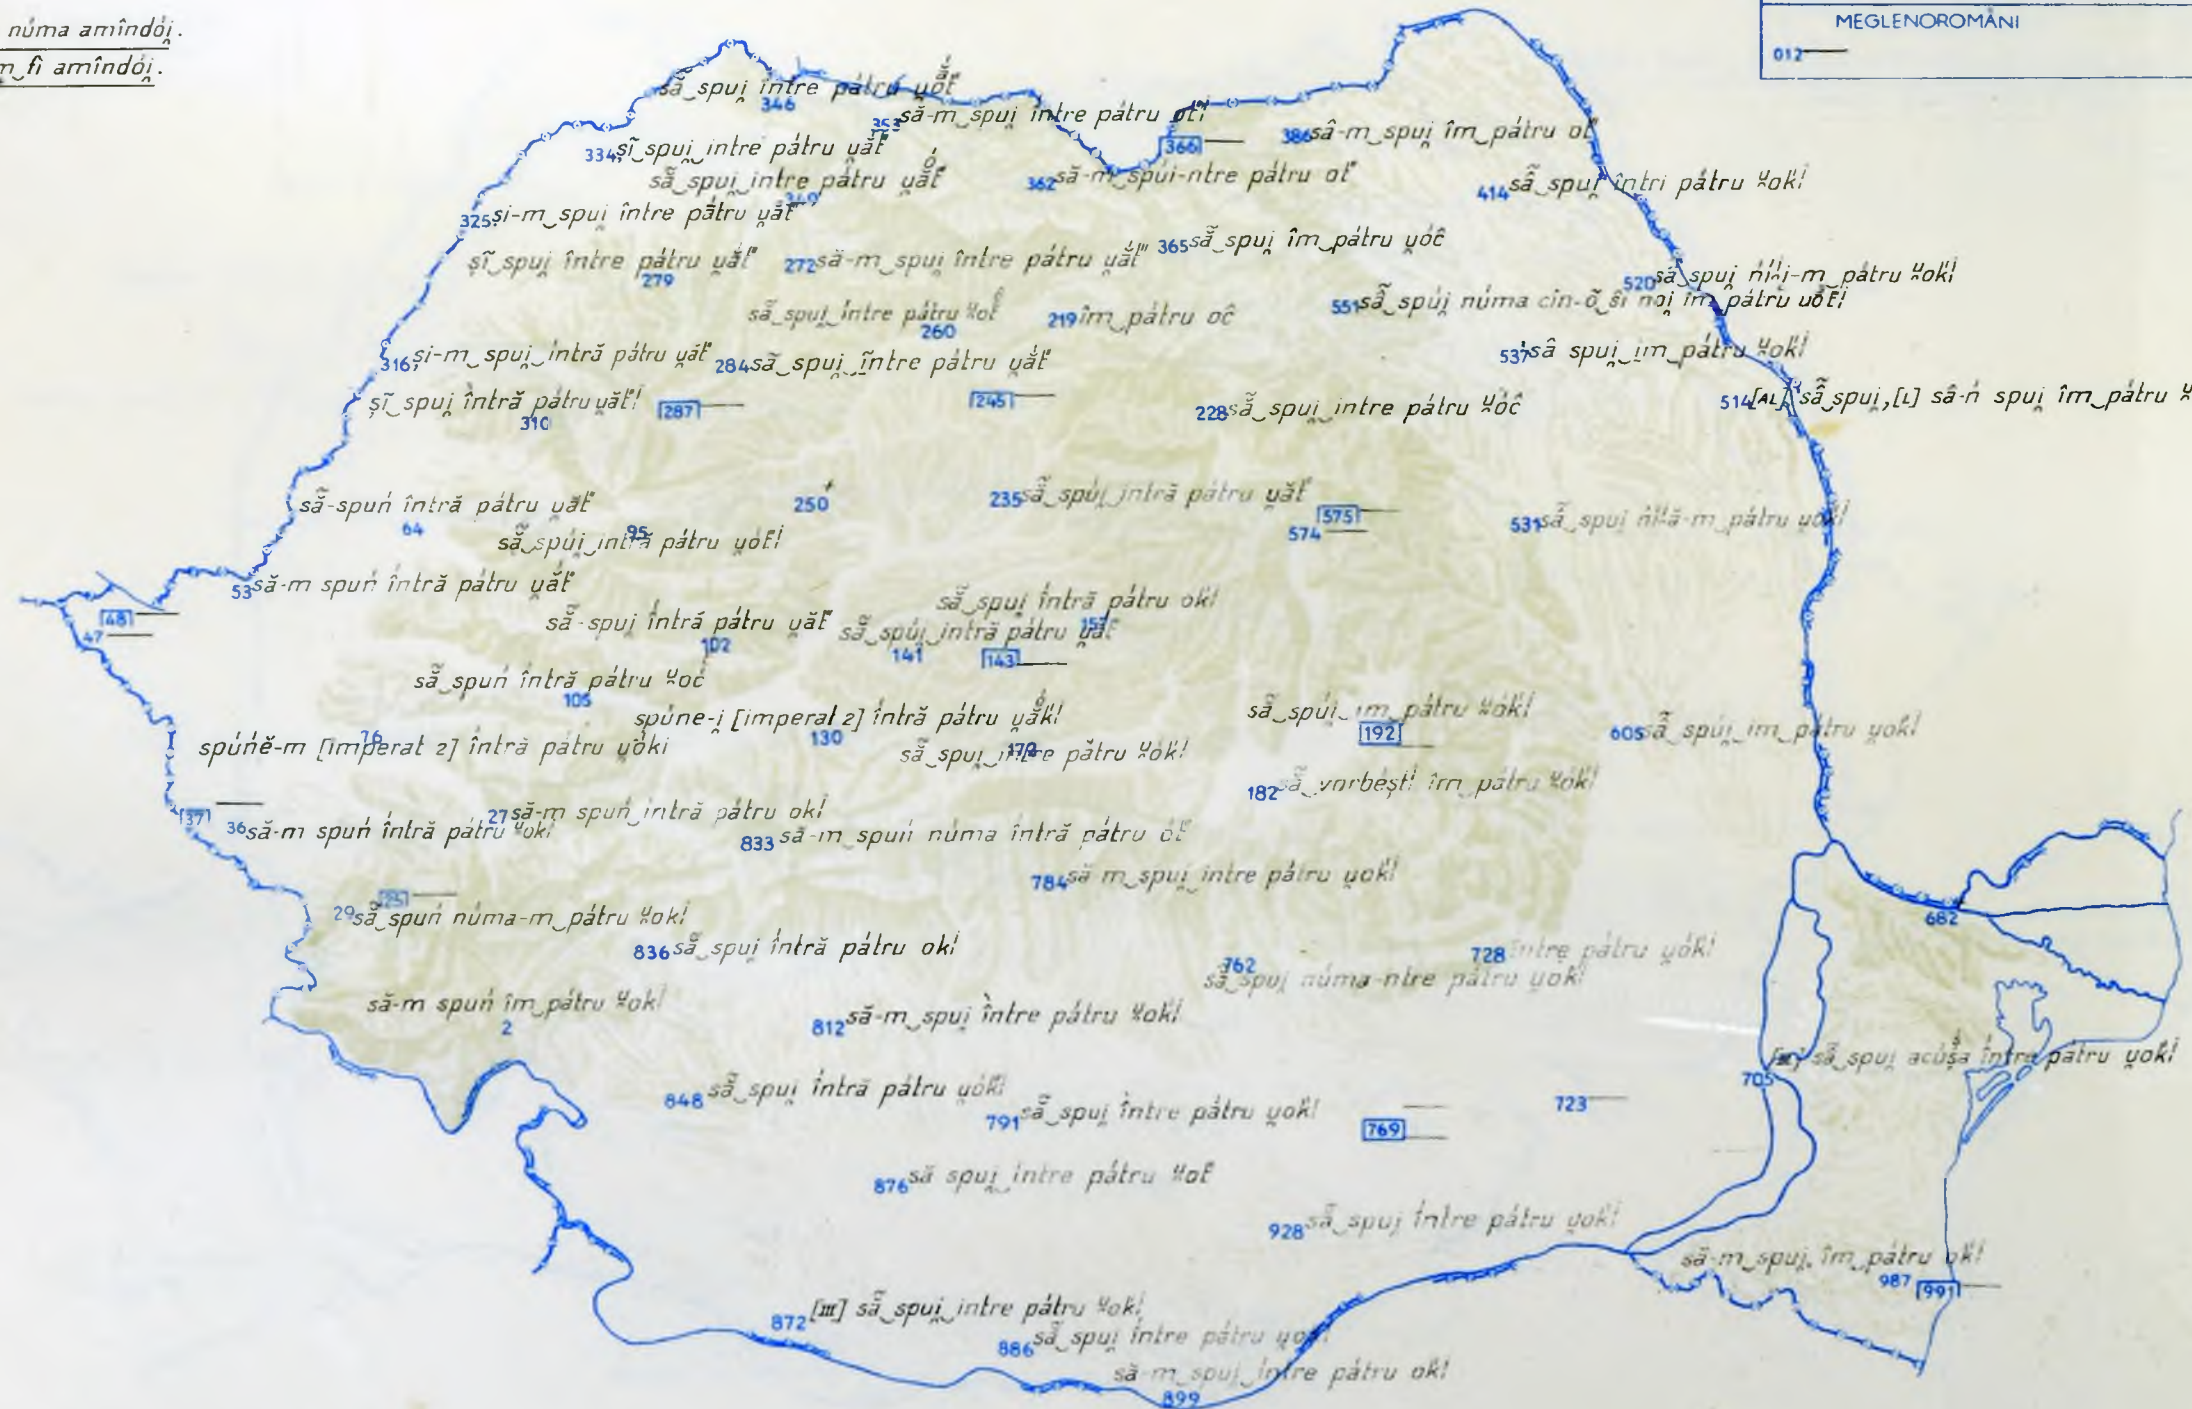 núma amîndói̯.
m‿fi amîndói̯.
MEGLENOROMÂNI
012
sẵ‿spui̯ între pátru u̯ăt́
346
353 să-m‿spui̯ între pátru ot́i
334 șĩ‿spui̯‿intre pátru u̯ăt́
366
386 sâ-m‿spui̯ îm‿pátru ot́
sẵ‿spui̯‿intre pátru u̯ăt́
349
362 să-m‿spúi-ntre pátru ot́
414 sẵ‿spui̯ întri pátru u̯ok!
325 și-m‿spui̯ între pătru u̯ăt́
șĩ‿spui̯ între pátru u̯ăt́
279
272 să-m‿spui̯ între pátru u̯ăt́
365 sẵ‿spui̯ îm‿pátru u̯óĉ
520 să‿spui̯ -m‿pátru u̯ok!
551 sẵ‿spúi̯ núma cin-õ‿și noi̯ îm‿pátru uot́!
sẵ‿spui̯‿între pátru u̯ot́
260
219 îm‿pátru oĉ
537 sâ spui̯‿im‿pátru u̯ok!
316 și-m‿spui̯‿intră pátru u̯ăt́
284 sẵ‿spui̯‿între pátru u̯ăt́
514 [AL] sẵ‿spui̯, [L] sâ-ń spui̯ îm‿pátru
șĩ‿spui̯ întră pátru u̯ăt́!
310
287
245
228 sẵ‿spui̯‿intre pátru u̯óĉ
sẵ-spuń întră pátru u̯ăt́
64
250
235 sẵ‿spúi̯‿intră pátru u̯ăt́
575
574
531 sẵ‿spui̯ -m‿pátru u̯ok!
95
sẵ‿spúi̯‿intră pátru u̯ot́!
53 să-m spuń întră pátru u̯ăt́
48
47
sẵ‿spui̯ întră pátru ok!
153
sẵ-spui̯ întră pátru u̯ăt́
102
sẵ‿spúi̯‿intră pátru u̯ăt́
141
143
sẵ‿spuń întră pátru u̯oĉ
105
spúne-i̯ [imperat 2] întră pátru u̯ăk!
130
sẵ‿spúi̯‿im‿pátru u̯ók!
192
605 sẵ‿spúi̯‿im‿pátru u̯ok!
76
spúńĕ-m [imperat 2] întră pátru u̯ŏki
sẵ‿spui̯‿intre pátru u̯ók!
172
182 sẵ‿vorbéșt! îm‿pátru u̯ók!
37
36 să-m spuń întră pátru u̯ok!
27 să-m spuń‿intră pátru ok!
833 să-m‿spuń núma întră pátru ot́
784 să m‿spui̯‿intre pátru u̯ok!
25
29 sẵ‿spuń núma-m‿pátru u̯ok!
836 sẵ‿spui̯ întră pátru ok!
682
762
sẵ‿spui̯ núma-ntre pátru u̯ok!
728 între pátru u̯ók!
să-m spuń îm‿pátru u̯ok!
2
812 să-m‿spui̯ între pátru u̯ok!
[III] sẵ‿spui̯ acúșa între pátru u̯ok!
705
848 sẵ‿spui̯ întră pátru u̯ók!
791 sẵ‿spui̯ între pátru u̯ok!
769
723
876 să spui̯‿intre pátru u̯ot́
928 sẵ‿spui̯ între pátru u̯ok!
să-m‿spui̯‿îm‿pátru ok!
987
991
872 [III] sẵ‿spui̯‿intre pátru u̯ok!
886 sẵ‿spui̯ între pátru u̯ok!
să-m‿spui̯‿intre pátru ok!
899